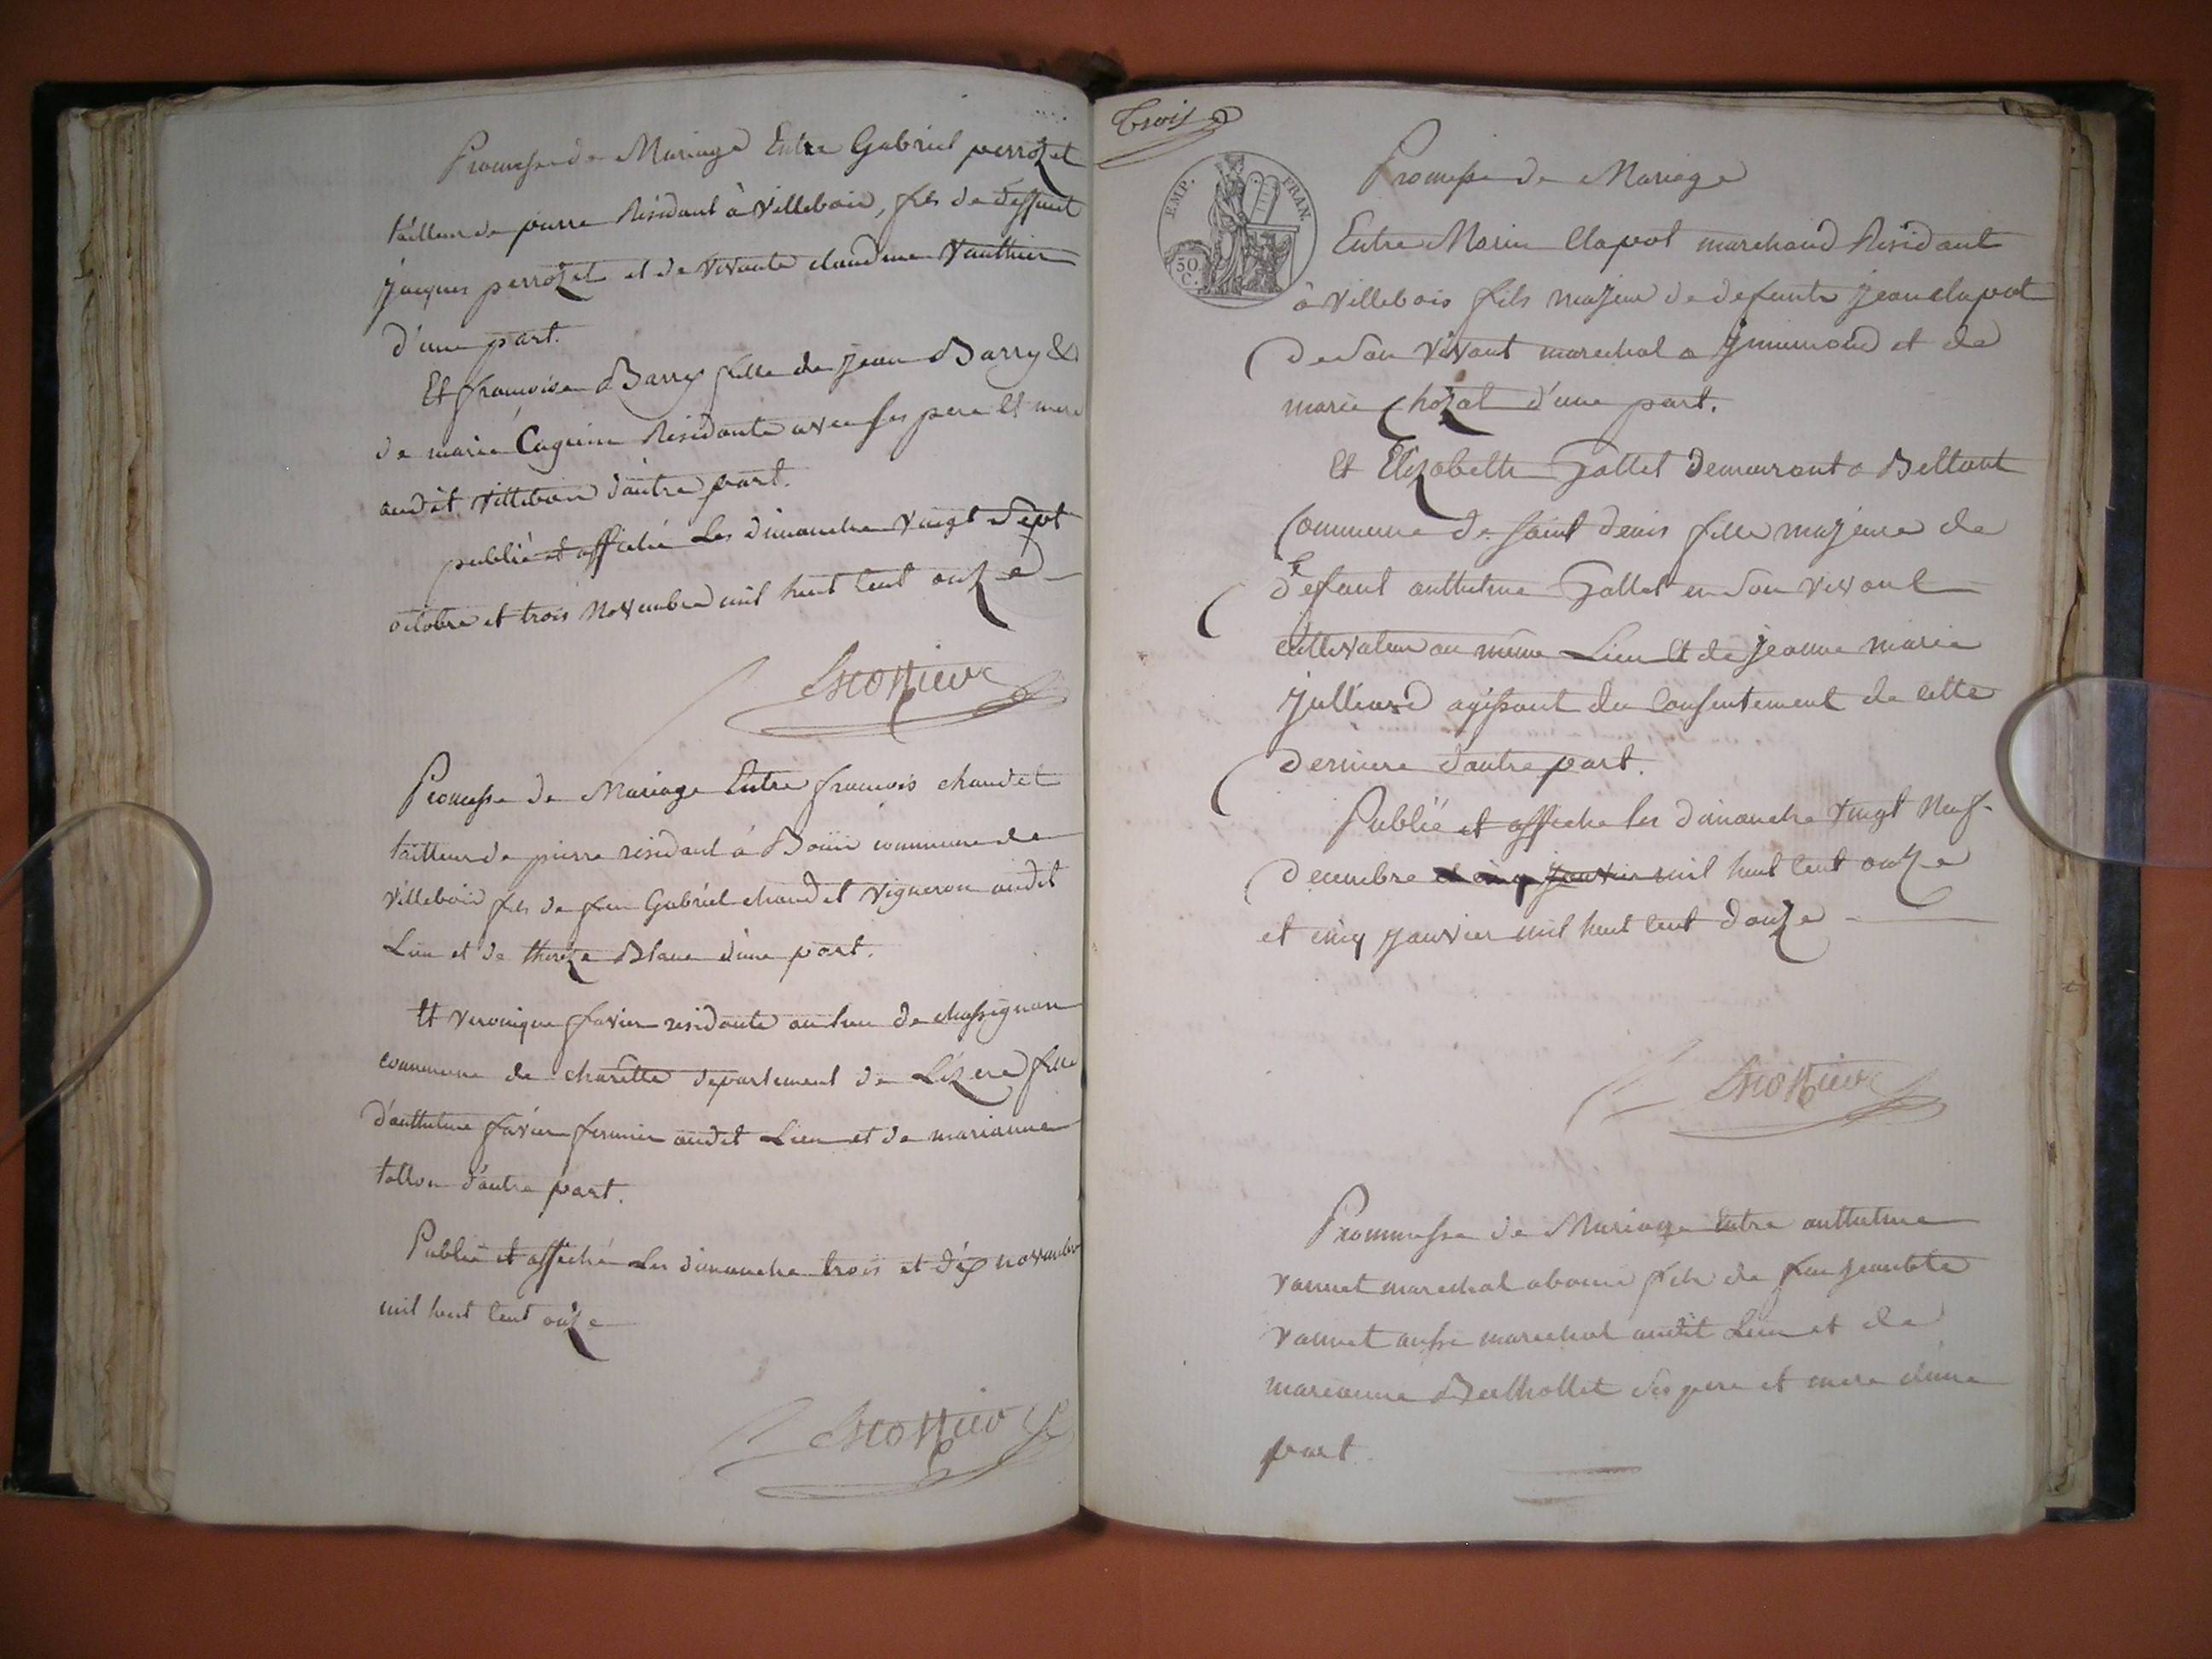 Promesse de Mariage Entre Gabriel perrozet
tailleur de pierre Résidant à Villebois, fils de deffunt
jacques perrozet et de vivante claudine Vauthier
d'une part.
Et françoise Barry fille de jean Barry &
de marie Caguin Residante avec ses pere et mere
audit villebois d'autre part.
publié et affiché Les dimanche vingt Sept
octobre et trois Novembre mil huit Cent onze
Promesse de Mariage Entre francois chaudet
tailleur de pierre résidant à Bouis commune de
Villebois fils de feu Gabriel chaudet Vigneron audit
Lieu et de thereze Blanc d'une part.
Et veronique favier residante au lieu de chassignan
commune de charette departement de Lizere fille
d'anthelme favier fermier audit Lieu et de marianne
tallon d'autre part.
Publié et affiché Les dimanche trois et dix novembre
mil huit Cent onze
Trois
EMP. FRAN.
50 C.
Promesse de Mariage
Entre Morin Clapot marchand Residant
à Villebois fils majeur de defunts jean clapot
de Son vivant marechal a et de
marie Chozat d'une part.
Et Elizabeth Gallet demeurant a Bettant
Commune de Saint denis fille majeure de
défunt anthelme Gallet en Son vivant
cultivateur au même Lieu et de jeanne marie
julliard agissant du Consentement de cette
derniere d'autre part.
Publié et affiche les dimanche vingt Neuf
decembre et cinq janvier mil huit Cent onze
et cinq janvier mil huit Cent douze
Prommesse de Mariage Entre anthelme
vannet marechal a bouis fils de feu jean bte
vannet aussi marechal audit Lieu et de
marianne Berthollet Ses pere et mere d'une
part.